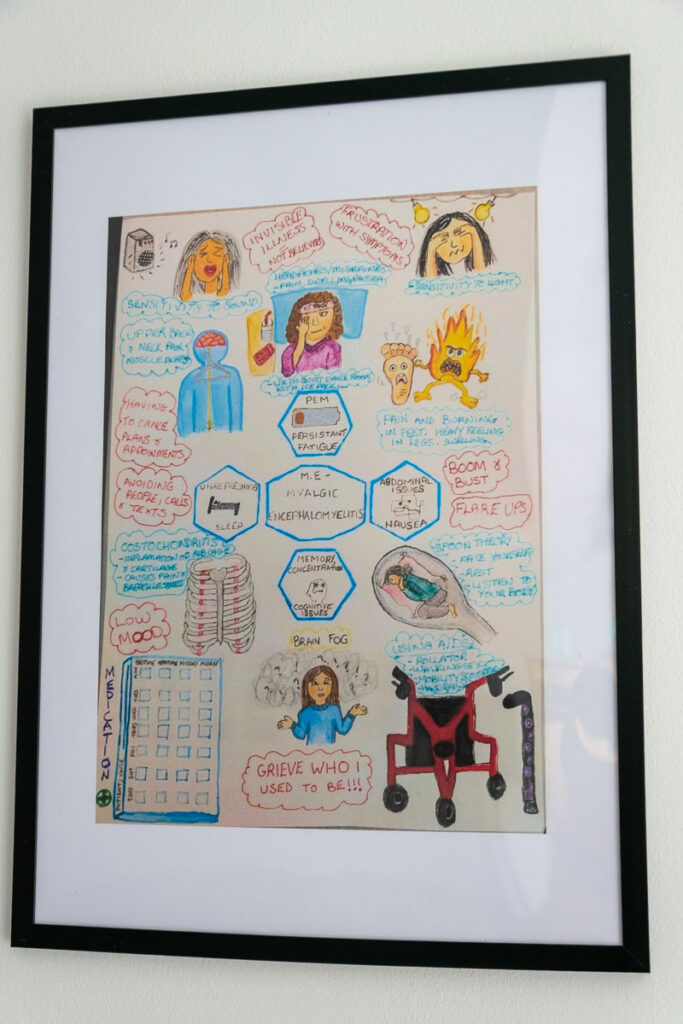 INVISIBLE
ILLNESS
NOT BELIEVED
FRUSTRATION
WITH SYMPTOMS
SENSITIVITY TO SOUND
HEADACHES/MIGRAINES
- PAIN, SWELLING, NAUSEA
SENSITIVITY TO LIGHT
UPPER BACK
& NECK PAIN
MUSCLE ACHES
- LIE IN QUIET DARK ROOM
WITH ICE PACK
PEM
PERSISTANT
FATIGUE
PAIN AND BURNING
IN FEET. HEAVY FEELING
IN LEGS. SWELLING.
HAVING
TO CANCEL
PLANS &
APPOINTMENTS
AVOIDING
PEOPLE, CALLS
& TEXTS
UNREFRESHING
SLEEP
M.E -
MYALGIC
ENCEPHALOMYELITIS
ABDOMINAL
ISSUES
NAUSEA
BOOM &
BUST
FLARE UPS
COSTOCHONDRITIS
- INFLAMATION OF RIB CAGE
& CARTILAGE
- CAUSES PAIN &
MEMORY
CONCENTRATION
COGNITIVE
ISSUES
SPOON THEORY
- PACE YOURSELF
- REST
- LISTEN TO
YOUR BODY
LOW
MOOD
BRAIN FOG
USING AIDS
- ROLLATOR
- WALKING STICK
MEDICATION
BEDTIME
MORN
GRIEVE WHO I
USED TO BE!!!